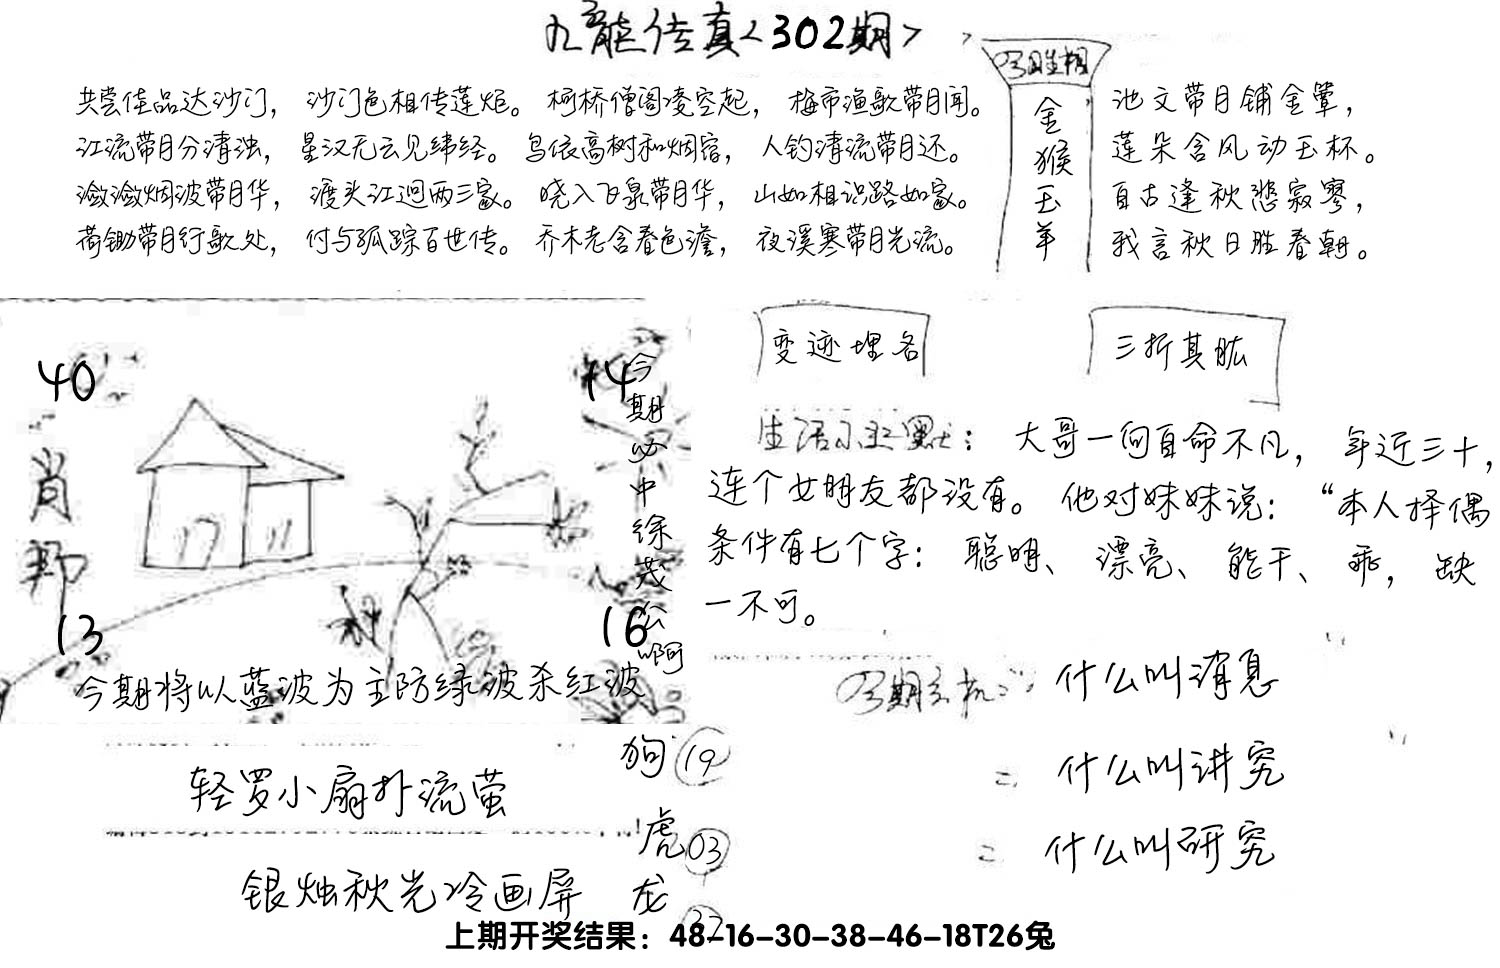 九龙传真<302期>
共尝佳品达沙门，沙门色相传莲炬。柯桥僧阁凌空起，梅市渔歌带月闻。
江流带月分清浊，星汉无云见纬经。鸟依高树和烟宿，人钓清流带月还。
潋潋烟波带月华，渡头江迥两三家。晓入飞泉带月华，山如相识路如家。
荷锄带月行歌处，付与孤踪百世传。乔木老含春色澹，夜溪寒带月光流。
金猴玉羊
池文带月铺金簟，
莲朵含风动玉杯。
自古逢秋悲寂寥，
我言秋日胜春朝。
40
14
肖
13
16
今期必中徐茂公啊
今期将以蓝波为主防绿波杀红波
变迹埋名
三折其肱
生活小幽默：大哥一向自命不凡，年近三十，
连个女朋友都没有。他对妹妹说：“本人择偶
条件有七个字：聪明、漂亮、能干、乖，缺
一不可。
什么叫消息
什么叫讲究
什么叫研究
轻罗小扇扑流萤
银烛秋光冷画屏
狗 19
虎 03
龙
上期开奖结果：48-16-30-38-46-18T26兔